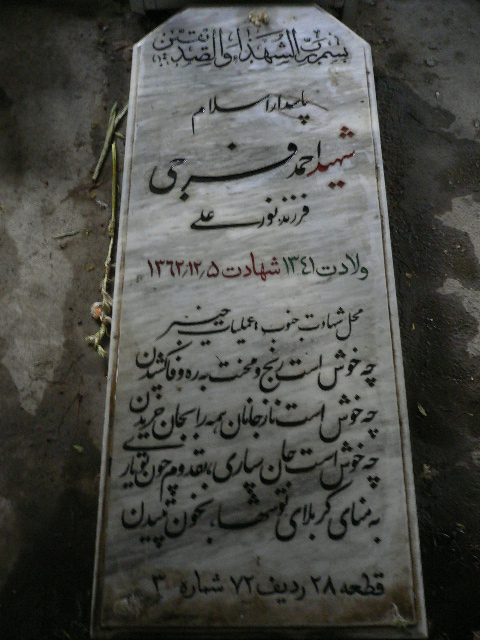 بسم رب الشهداء والصدیقین
پاسدار اسلام
شهید احمد فرجی
فرزند نورعلی
ولادت ۱۳۴۱ شهادت ۱۳۶۲٫۱۲٫۵
محل شهادت جنوب؛ عملیات خیبر
چه خوش است رنج و محنت به ره وفا کشیدن
چه خوش است ناز جانان همه را بجان خریدن
چه خوش است جان سپاری بقدوم چون تو یاری
به منای کربلای تو شها بخون تپیدن
قطعه ۲۸ ردیف ۷۲ شماره ۳